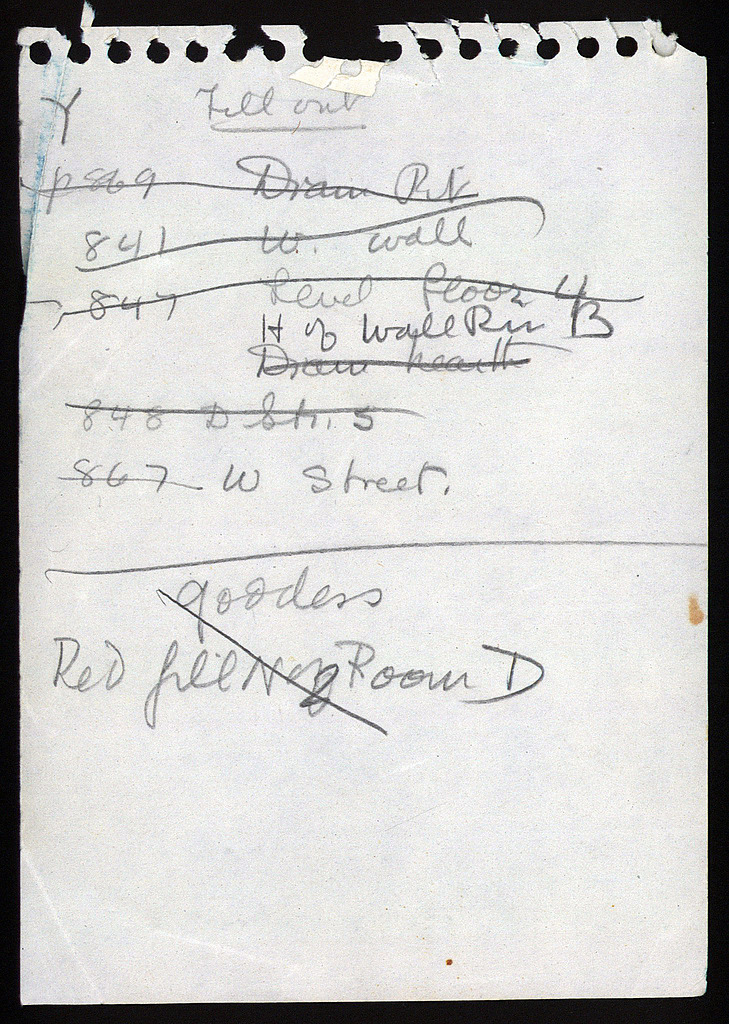 Y Fill out
p 869 Diam Pit
841 W. wall
847 Level floor 4
H of Wall Rm B
Diam hearth
848 D Str. 5
867 W Street.
goddess
Red fill N of Room D